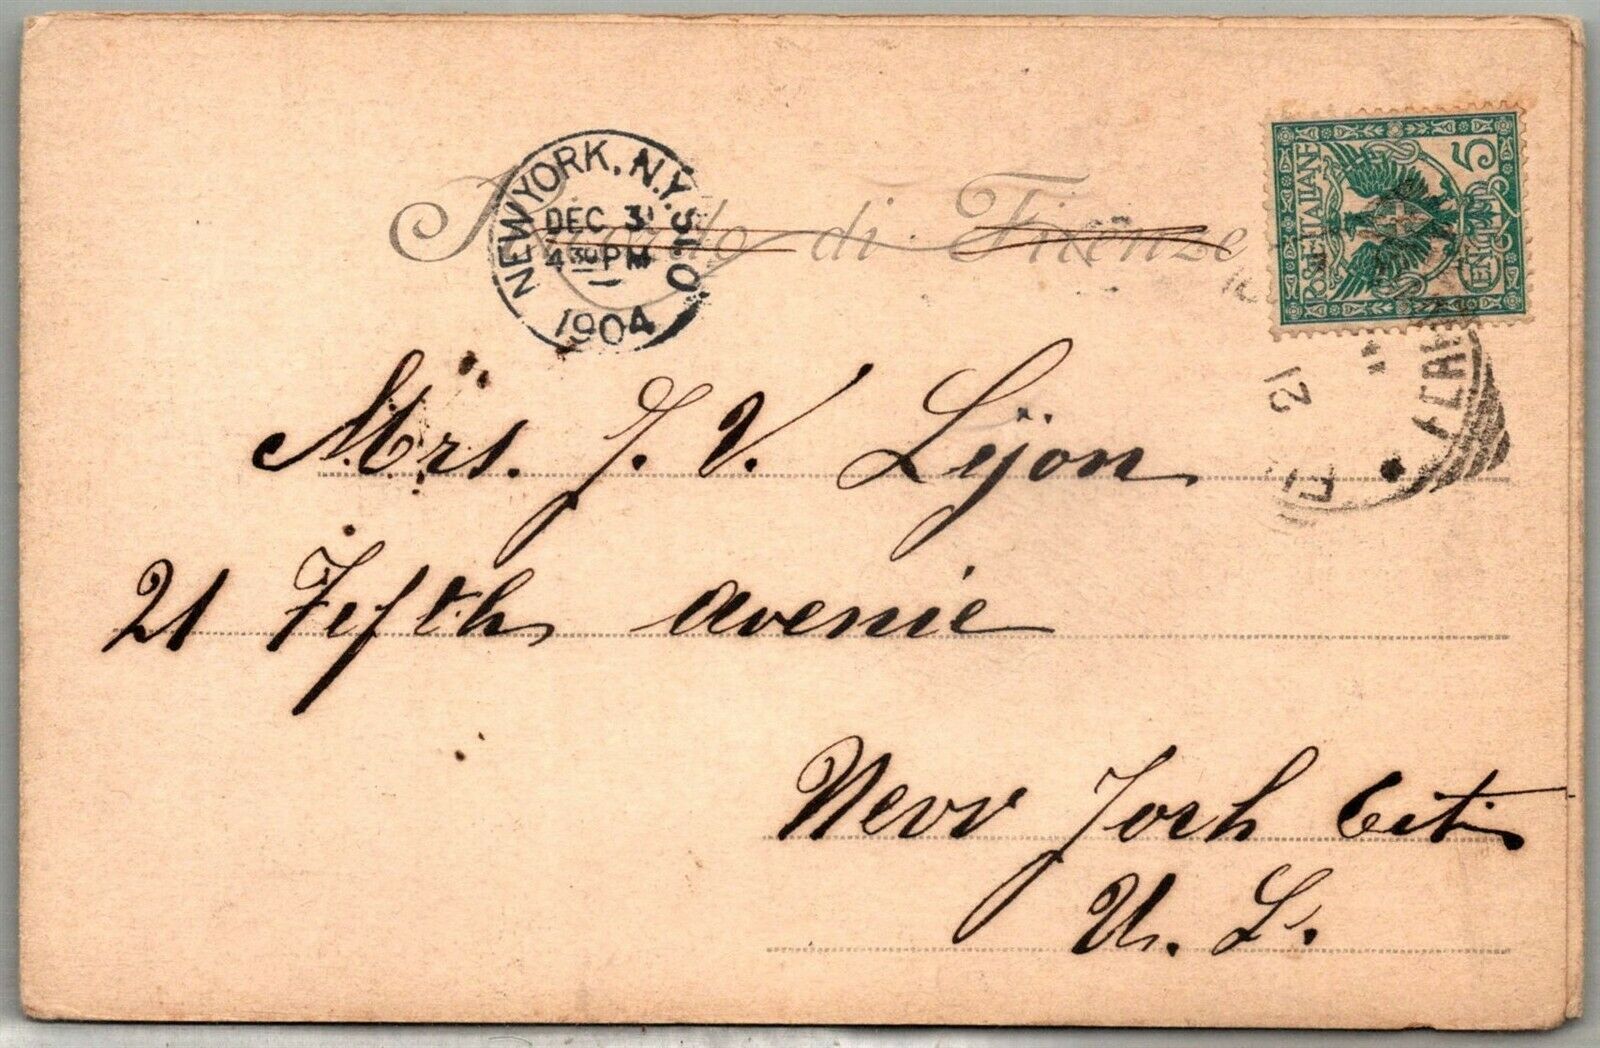 Ricordo di Firenze
NEW YORK, N.Y. STA. O.
DEC 31
4 30 PM
1904
POSTE ITALIANE
CENT. 5
21
Mrs. J. V. Lyon
21 Fifth avenie
New York City
U. S.